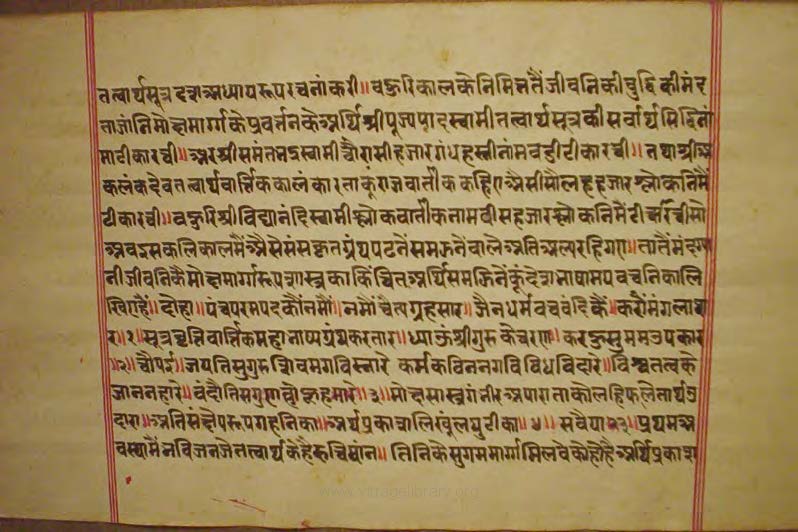 तत्वार्थसूत्र दशाअध्यायरूप रचनां करी॥ बहुरि कालके निमित्ततैं जीवनिकी बुद्धिकी मंद
ता जांनि मोक्षमार्गके प्रवर्त्तनके अर्थि श्री पूज्यपादस्वामी तत्वार्थसूत्रकी सर्वार्थसिद्धि नां
मा टीका रची॥ अर श्रीसमंतभद्रस्वामी चौरासी हजार गंधहस्ती नांम बडी टीका रची॥ तथा श्रीअ
कलंकदेव तत्वार्थवार्त्तिककालंकार ताकूं राजवार्तीक कहिए अैसी सौलह हजार श्लोकनिमैं
टीका रची॥ बहुरि श्रीविद्यानंदिस्वामी श्लोकवार्तीक नाम वीस हजार श्लोकनिमैं टी रची सो
अब इस कलिकालमैं अैसे संस्कृत ग्रंथ पढनें समझनेवाले अति अल्प रहि गए॥ तातैं मंद
नी जीवनिकै मोक्षमार्गरूप शास्त्रका किंचित अर्थ समझिनेकूं देशभाषामय वचनिका लि
खिए है॥ दोहा॥ पंच परमपद कौं नमौं॥ नमौं चैत्य गृह सार॥ जैनधर्म वच वंदिकैं॥ करौं मंगला
र॥१॥ सूत्र वार्त्तिक महाभाष्य ग्रंथ करतार॥ ध्याऊं श्रीगुरुके चरण॥ करहु सु मम उपकार
॥२॥ चौपई॥ जयति सुगुरु शिवमग विस्तारे कर्म कठिन नग विविध विदारे॥ विश्वतत्वके
जाननहारे॥ वंदौं ति हमारे॥३॥ मोक्षसास्त्र गंभीर अपारा ताको लहि फलेतार्थ उ
दारा॥ अति संक्षेपरूप गहनिका॥ अर्थप्रकाशि लिखूं लघु टीका॥४॥ सवैया प्रथम अ
वस्थामैं भविजन जे तत्वार्थ कहै रुचि ठांन॥ तिनिके सुगम मार्ग मिलवेको होहै अर्थप्रकाश
www.vitragelibrary.org